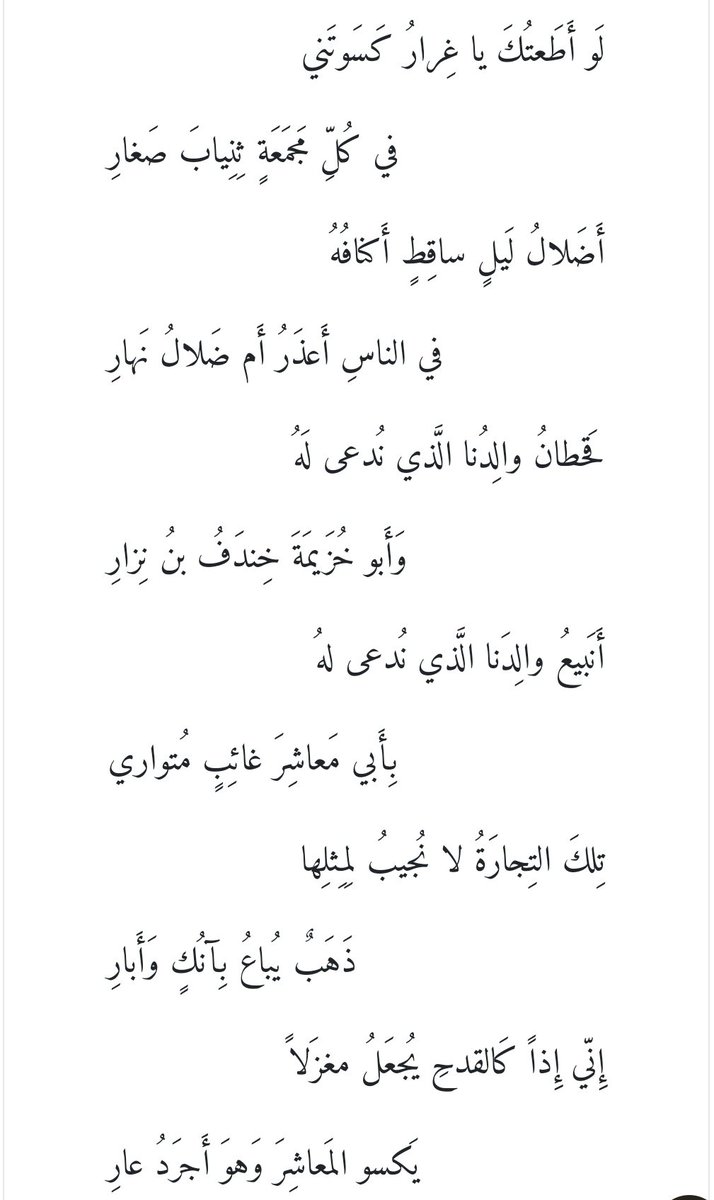 لَو أَطَعتُكَ يا غِرارُ كَسَوتَني
في كُلِّ مَجمَعَةٍ ثِنِيابَ صَغارِ
أَضَلالُ لَيلٍ ساقِطٍ أَكنافُهُ
في الناسِ أَعذَرُ أَم ضَلالُ نَهارِ
قَحَطانُ والِدُنا الَّذي نُدعى لَهُ
وَأَبو خُزَيمَةَ خِندَفُ بنُ نِزارِ
أَنَبيعُ والِدَنا الَّذي نُدعى لهُ
بِأَبي مَعاشِرَ غائِبٍ مُتواري
تِلكَ التِجارَةُ لا نُجيبُ لِمِثلِها
ذَهَبٌ يُباعُ بِآنُكٍ وَأَبارِ
إِنّي إِذاً كَالقدحِ يُجعَلُ مغزَلاً
يَكسو المَعاشِرَ وَهوَ أَجرَدُ عارِ